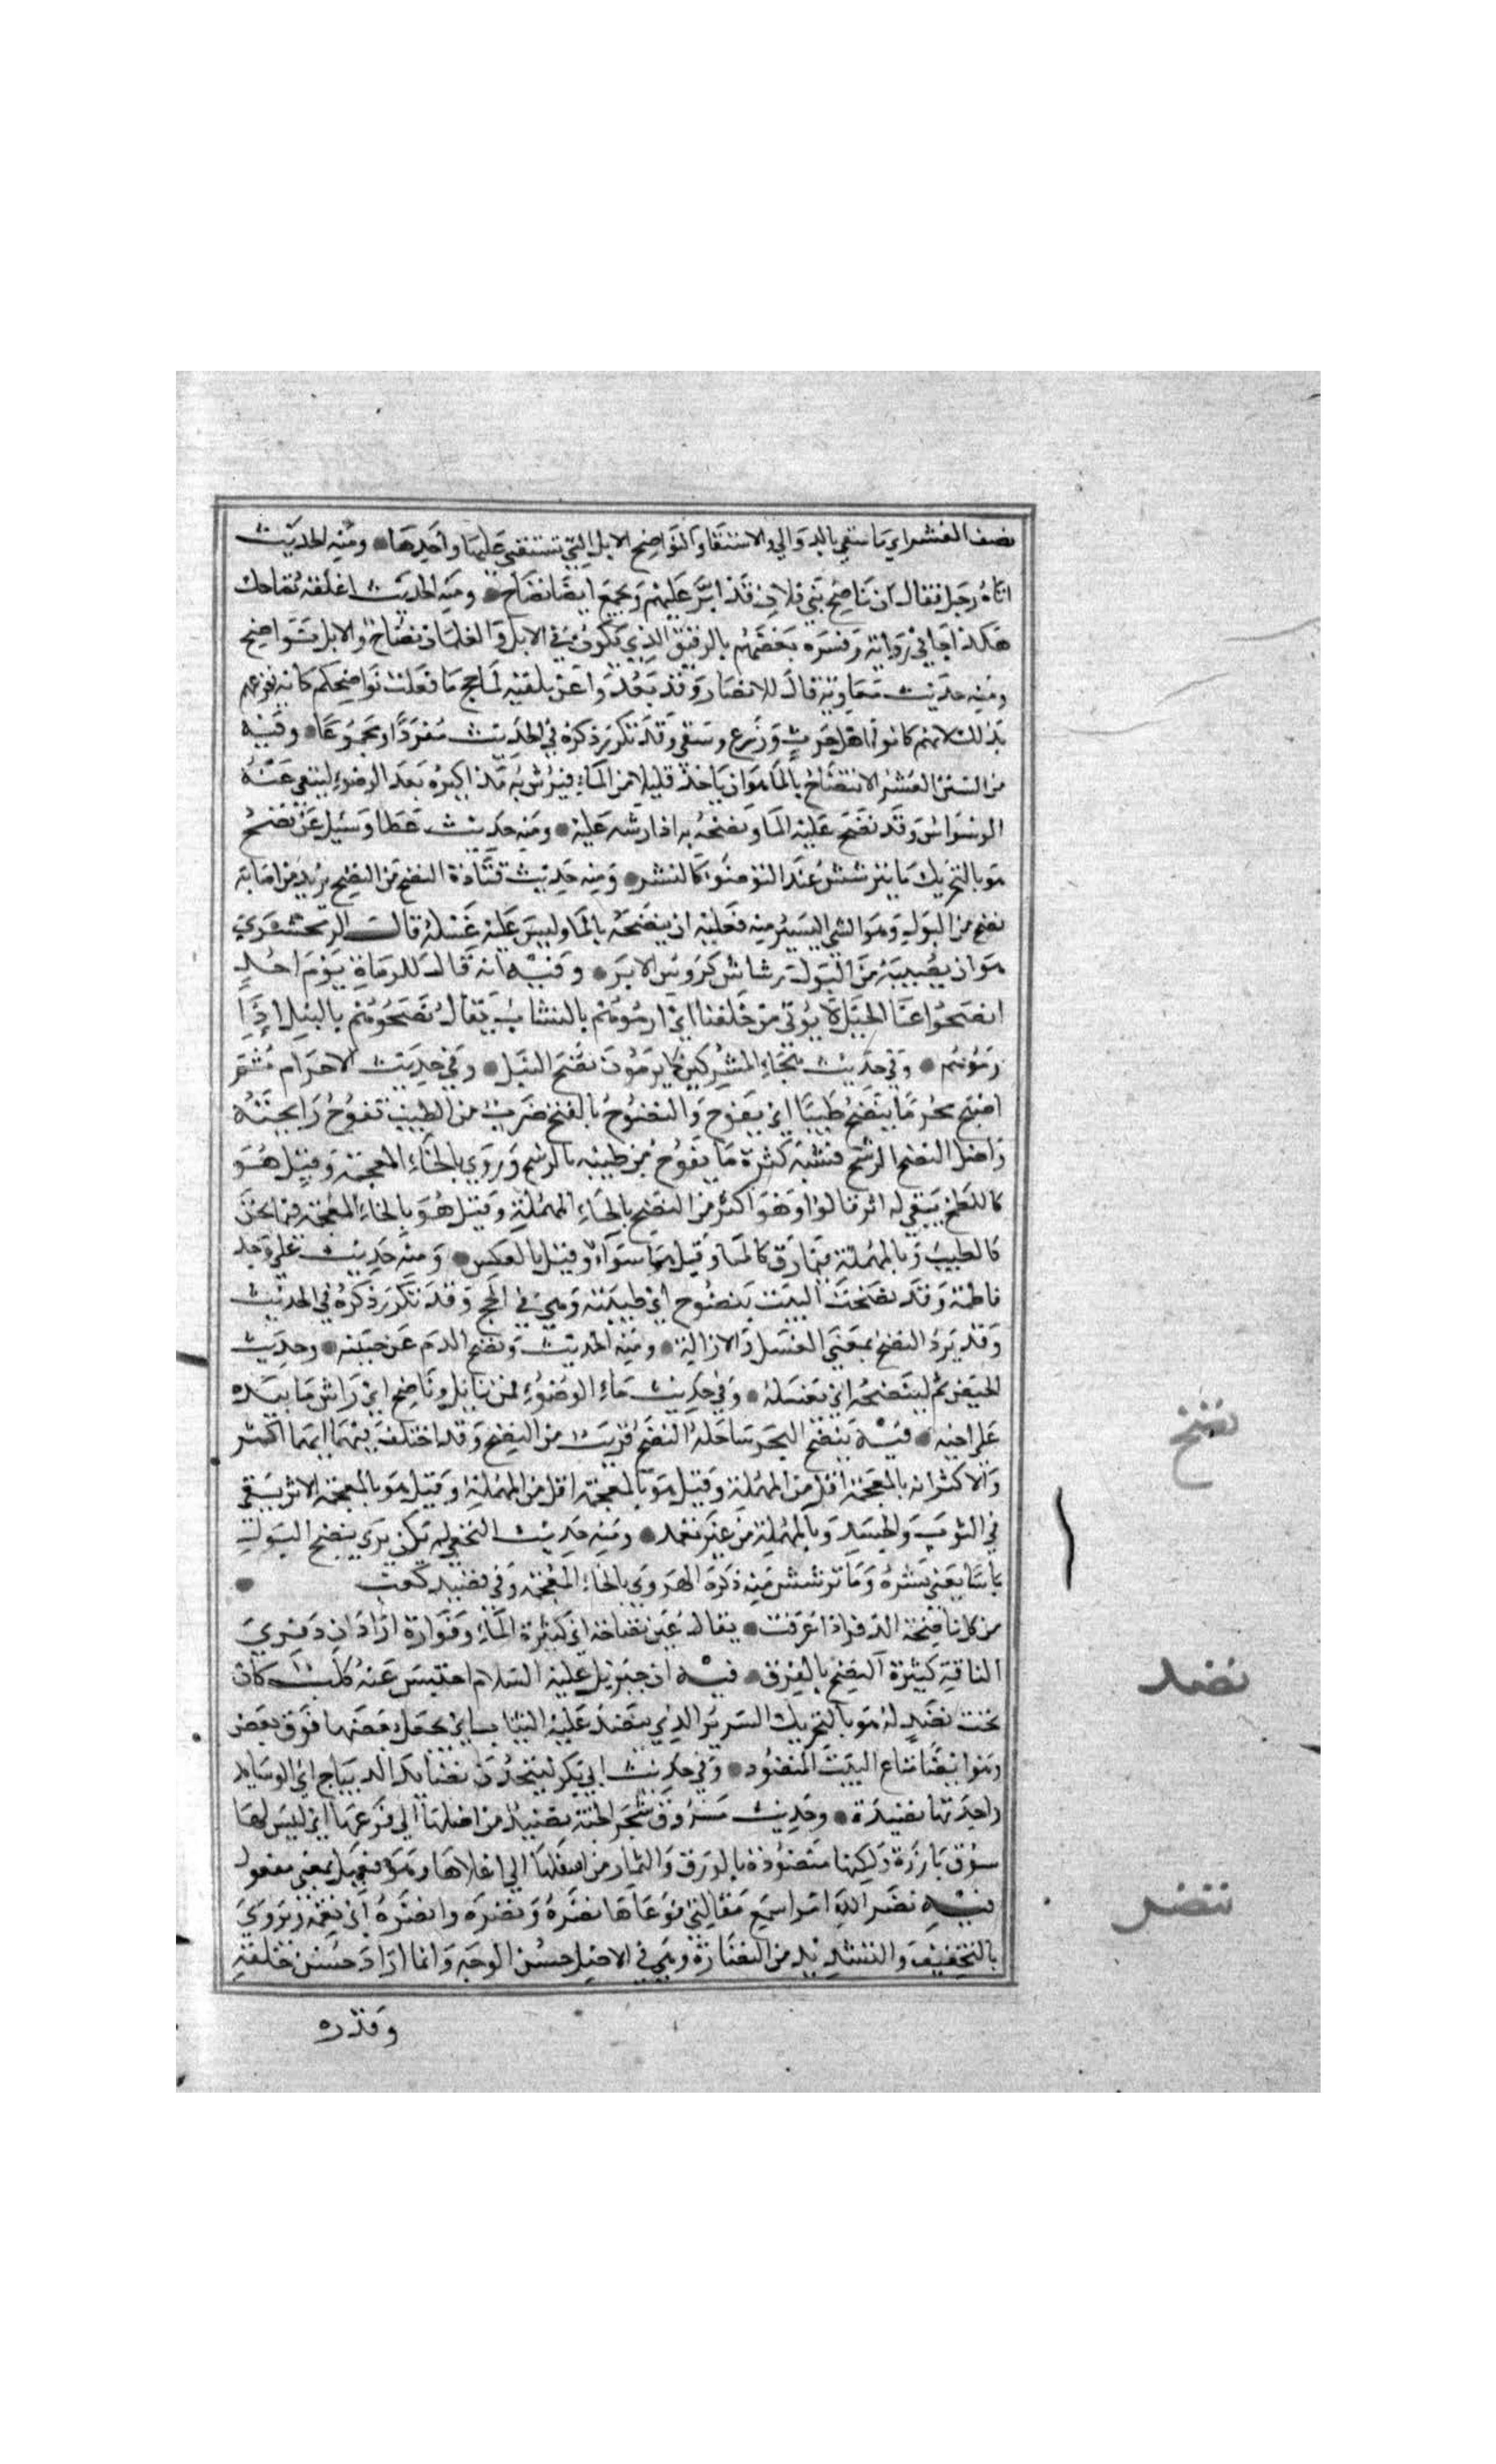 نصف العشر اي ما سقي بالدوالي والاستقا والنواضح الابل التي تستقي عليها واحدها ومنه الحديث
اتاه رجل فقال ان ناضح بني فلان قد ابد عليهم ويجمع ايضا نضاح ومنه الحديث اعلفه نضاحك
هكذا جا في رواية وفسره بعضهم بالرقيق الذي يكون في الابل والغلمان نضاح والابل نواضح
ومنه حديث معاوية قال للانصار وقد بعدوا عن تلقيه لما حج ما فعلت نواضحكم كانه يقرعهم
بذلك لانهم كانوا اهل حرث وزرع وسقي وقد تكرر ذكره في الحديث مفردا ومجموعا وفيه
من السنن العشر الانتضاح بالما هو ان ياخذ قليلا من الماء فيرش به مذاكيره بعد الوضوء لينفي عنه
الوسواس وقد نضح عليه الما ونضحه به اذا رشه عليه ومنه حديث عطا وسئل عن نضح
هو بالتحريك ما يترشش عند التوضؤ كالنشر ومنه حديث قتادة النضح من النضح يريد من اصابه
نضح من البول وهو الشي اليسير منه فعليه ان ينضحه بالما وليس عليه غسله قال الزمخشري
هو ان يصيبه من البول رشاش كروس الابر وفيه انه قال للرماة يوم احد
انضحوا عنا الخيل لا يؤتى من خلفنا اي ارموهم بالنشاب يقال نضحوهم بالنبل اذا
رموهم وفي حديث هجاء المشركين كما يرمون نضح النبل وفي حديث الاحرام ثم
اصبح محرما ينضح طيبا اي يفوح والنضوح بالفتح ضرب من الطيب تفوح رايحته
واصل النضح الرشح فشبه كثرة ما يفوح من طيبه بالرشح وروي بالخاء المعجمة وقيل هو
كاللطخ يبقى له اثر قالوا وهو اكثر من النضح بالحاء المهملة وقيل هو بالخاء المعجمة فيما ثخن
كالطيب وبالمهملة فيما رق كالما وقيل هما سواء وقيل بالعكس ومنه حديث علي وجد
فاطمة وقد نضحت البيت بنضوح اي طيبته وهي في الحج وقد تكرر ذكره في الحديث
وقد يرد النضح بمعنى الغسل والازالة ومنه الحديث ونضح الدم عن جبينه وحديث
الحيض ثم لتنضحه اي تغسله وفي حديث ماء الوضوء فمن نايل وناضح اي راش مما بيده
على اخيه فيه ينضخ البحر ساحله النضخ قريب من النضح وقد اختلف فيهما ايهما اكثر
والاكثر انه بالمعجمة اقل من المهملة وقيل هو بالمعجمة اقل من المهملة وقيل هو بالمعجمة الاثر يبقى
في الثوب والجسد وبالمهملة من غير تعمد ومنه حديث النخعي لم يكن يرى بنضخ البول
باسا يعني نشره وما ترشش منه ذكره الهروي بالخاء المعجمة وفي قصيد كعب
من كل نضاخة الذفرى اذا عرقت يقال عين نضاخة اي كثيرة الماء وفوارة اراد ان ذفري
الناقة كثيرة النضخ بالعرق فيه ان جبريل عليه السلام احتبس عنه كلب كان
تحت نضد له هو بالتحريك السرير الذي ينضد عليه الثياب اي يجعل بعضها فوق بعض
وهو ايضا متاع البيت المنضود وفي حديث ابي بكر ليتخذن نضايد الديباج اي الوسايد
واحدتها نضيدة وحديث مسروق شجر الجنة نضيد من اصلها الى فرعها اي ليس لها
سوق بارزة ولكنها منضودة بالورق والثمار من اسفلها الى اعلاها وهو فعيل بمعنى مفعول
فيه نضر الله امرا سمع مقالتي فوعاها نضره ونضره وانضره اي نعمه ويروي
بالتخفيف والتشديد من النضارة وهي في الاصل حسن الوجه وانما اراد حسن خلقه
وقدره
نضخ
نضد
نضر